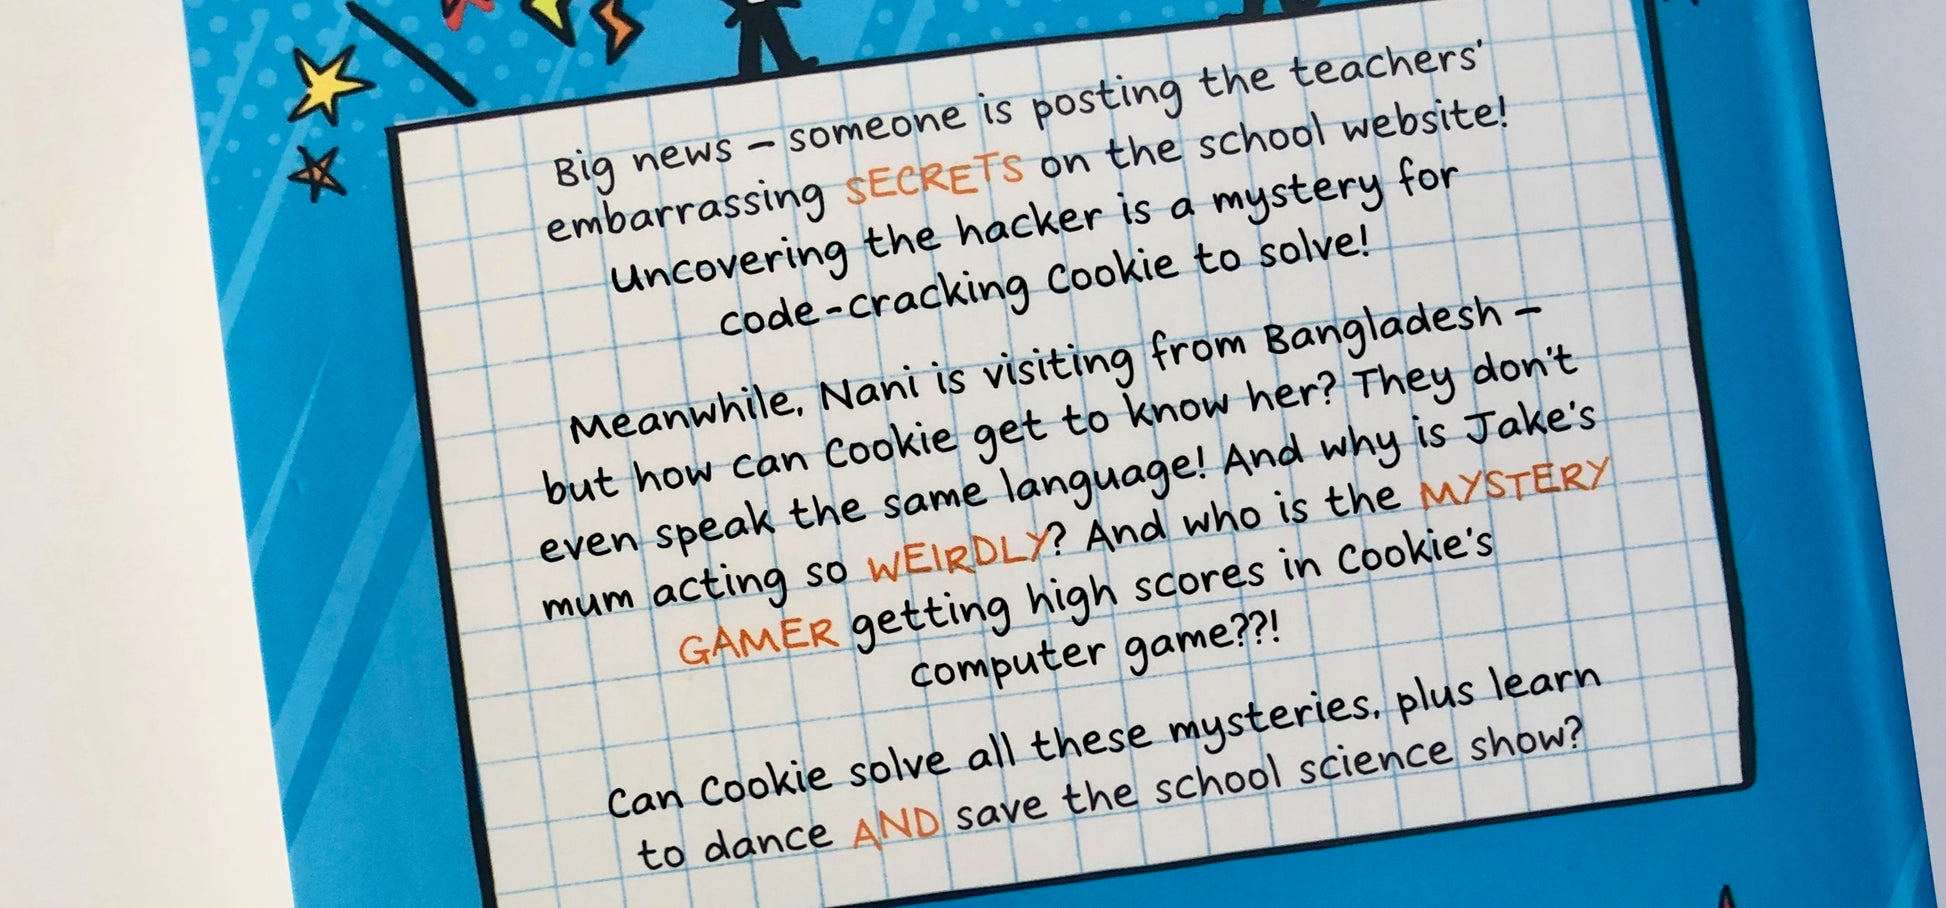 Big news – someone is posting the teachers'
embarrassing SECRETS on the school website!
Uncovering the hacker is a mystery for
code-cracking Cookie to solve!
Meanwhile, Nani is visiting from Bangladesh –
but how can Cookie get to know her? They don't
even speak the same language! And why is Jake's
mum acting so WEIRDLY? And who is the MYSTERY
GAMER getting high scores in Cookie's
computer game??!
Can Cookie solve all these mysteries, plus learn
to dance AND save the school science show?